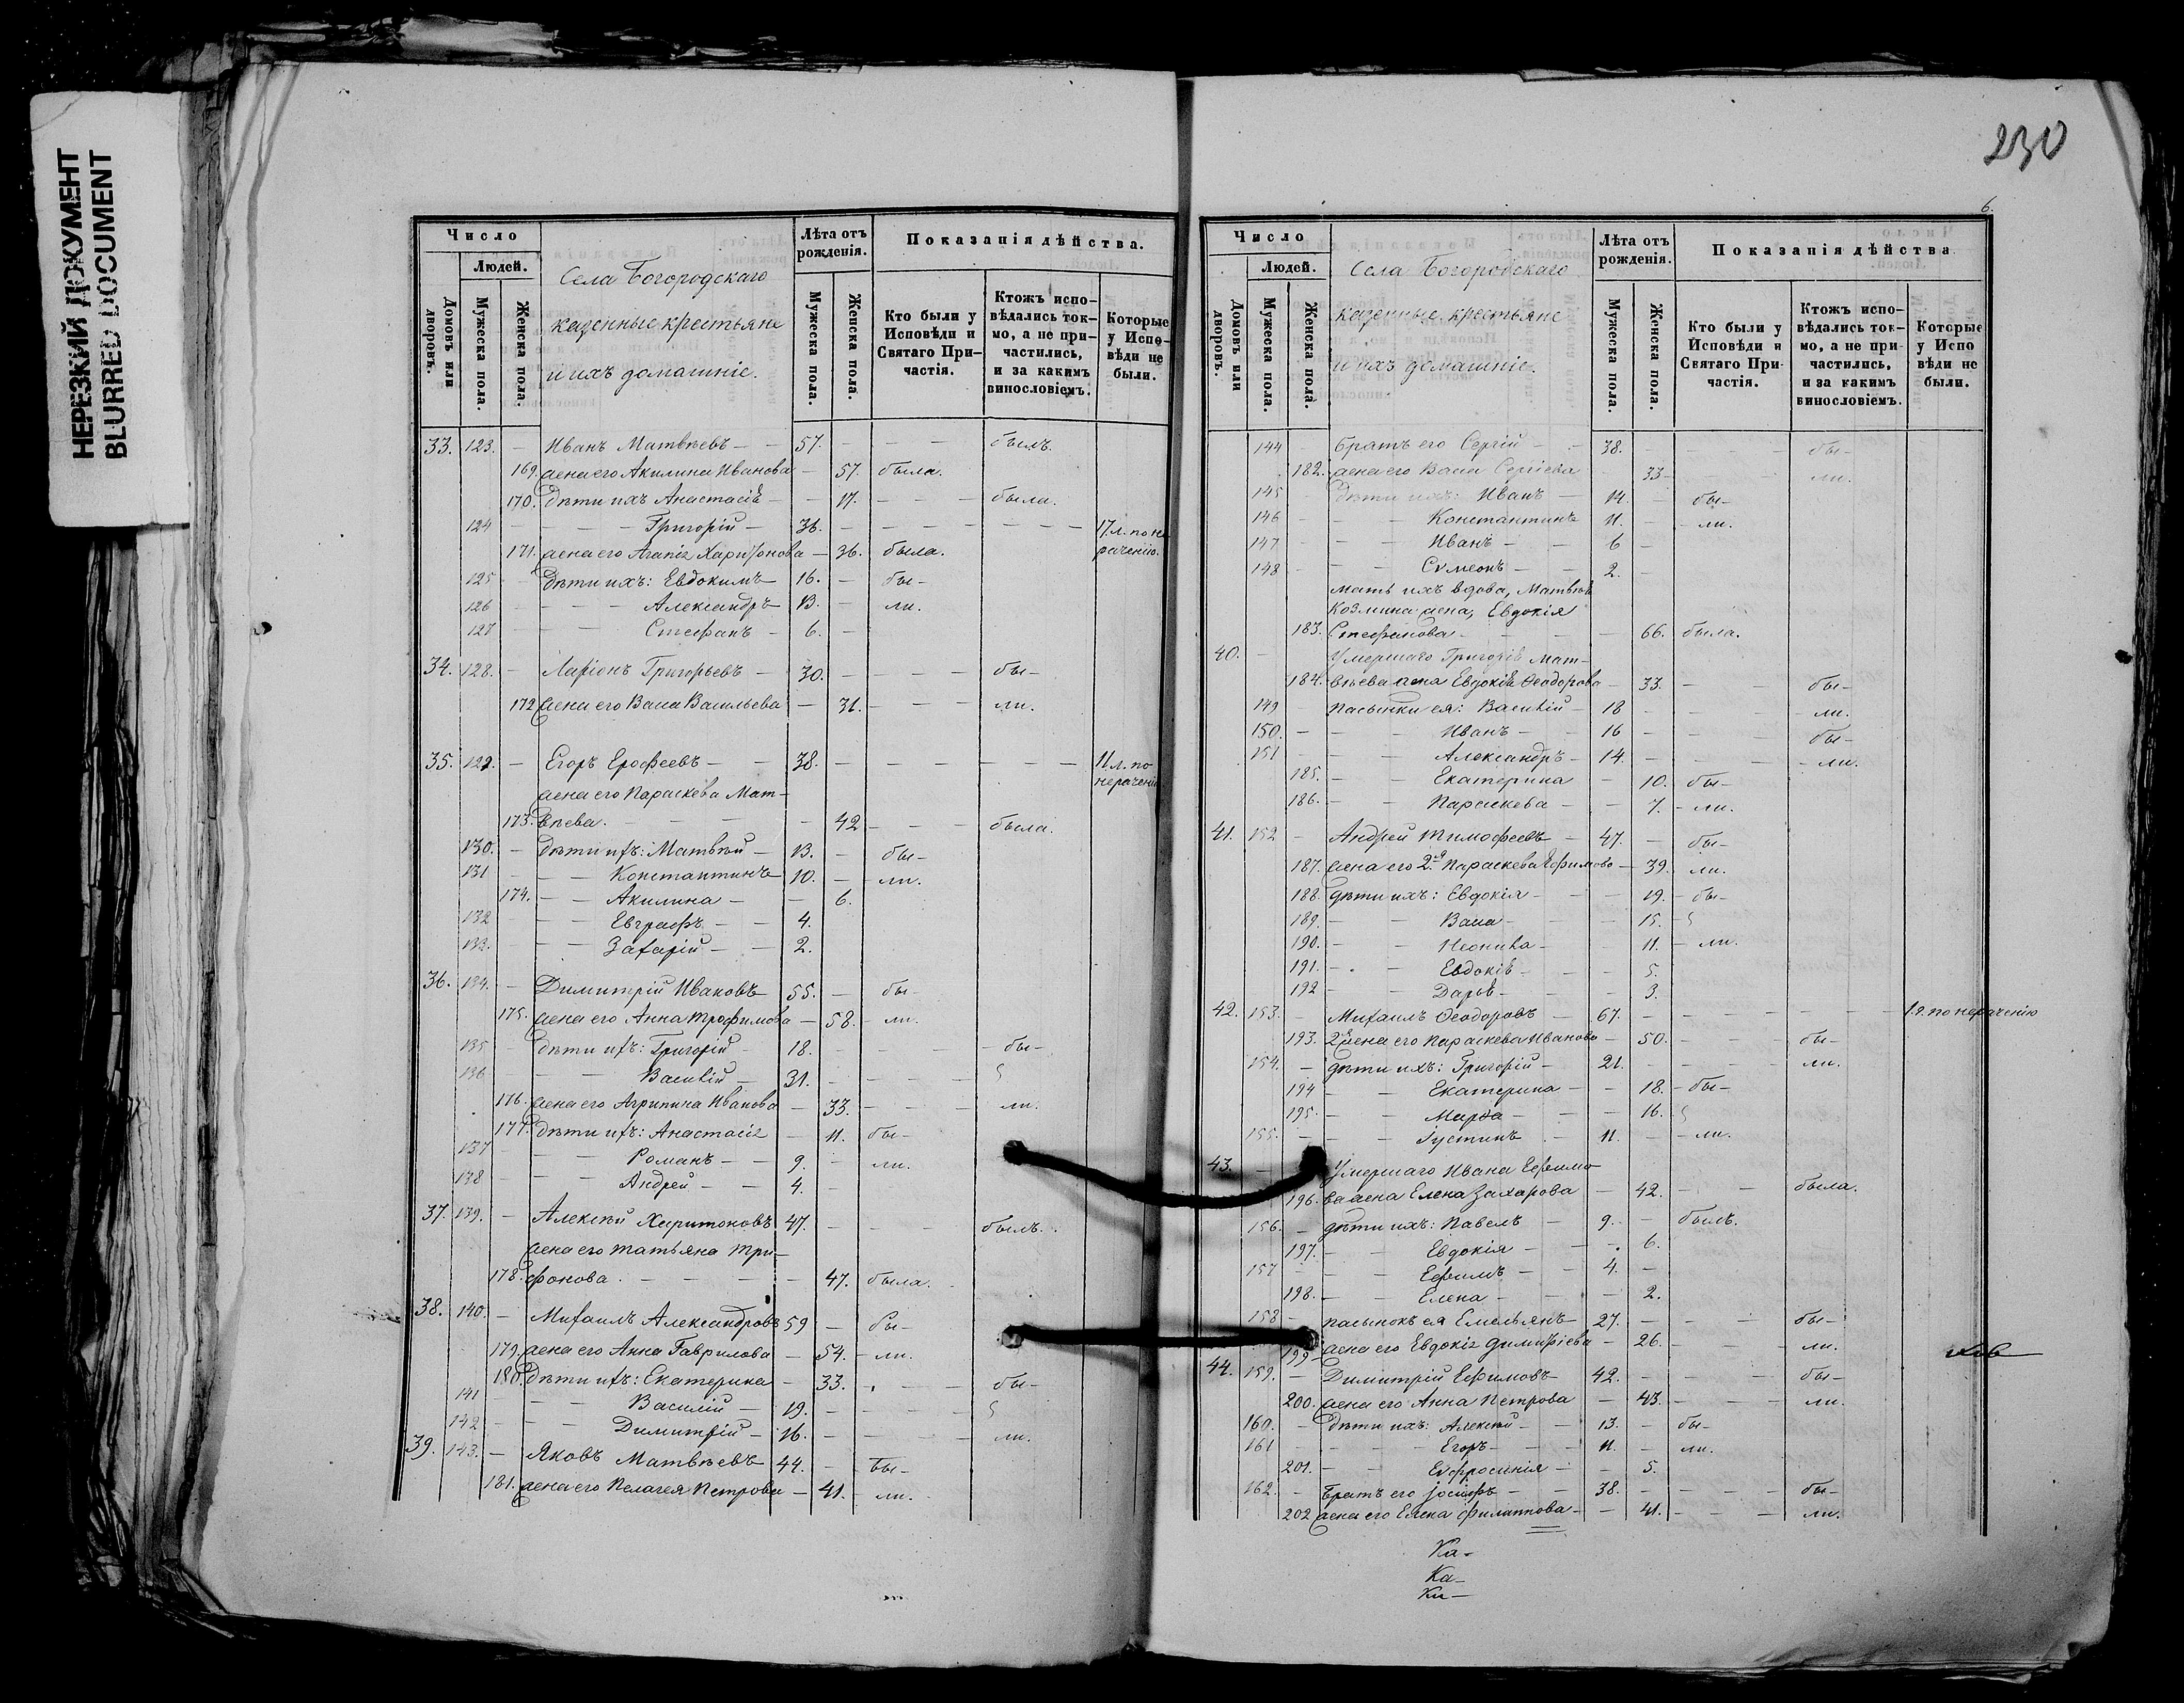 НЕРЕЗКИЙ ДОКУМЕНТ
BLURRED DOCUMENT
Число
Людей.
Домовъ или дворовъ.
Мужеска пола.
Женска пола.
Села Богородскаго
казенные крестьяне
и ихъ домашніе.
Лѣта отъ рожденія.
Мужеска пола.
Женска пола.
Показанія дѣйства.
Кто были у Исповѣди и Святаго Причастія.
Ктожъ исповѣдались токмо, а не причастились, и за какимъ винословіемъ.
Которые у Исповѣди не были.
33. 123. – Иванъ Матвѣевъ – – 57. – – – былъ.
169. жена его Акилина Иванова – 57. была.
170. дѣти ихъ Анастасія – – 17. – – – была.
124 – – – – Григорій – 36. – – – – – – – 17 л. по не
171. жена его Агапія Харитонова – 36. была. раченію.
125 – дѣти ихъ: Евдокимъ 16. – бы–
126 – – – – Александръ 13. – ли.
127 – – – Стефанъ – 6. –
34. 128. – Ларіонъ Григорьевъ – 30. – – – – бы–
172 жена его Васса Васильева – 31. – – – ли.
35. 129. – Егоръ Ерофеевъ – – 38. – – – – – – – 11 л. по
жена его Параскева Мат– нераченію
173. вѣева. – – – – 42 – – – была.
130. – дѣти ихъ: Матвѣй – 13. – бы–
131 – – – Константинъ 10. – – ли.
174. – – Акилина – – 6.
132 – – Евграфъ – – 4.
133. – – – Захарій – – 2.
36. 134. – Димитрій Ивановъ 55. – бы–
175. жена его Анна Трофимова – 58. – ли.
135 – дѣти ихъ: Григорій 18. – – – бы–
136 – – – Василій – 31. – – –
176. жена его Агрипина Иванова – 33. – – – ли.
177. дѣти ихъ: Анастасія – 11. бы–
137 – – – Романъ – – 9. – ли.
138 – – – Андрей – – 4. –
37. 139. – Алексѣй Харитоновъ 47. – – – былъ.
жена его Татьяна Три–
178. фонова. – – – – – 47. была.
38. 140. – Михаилъ Александровъ 59 – бы–
179. жена его Анна Гаврилова – 54. – ли.
180. дѣти ихъ: Екатерина – 33. – – бы–
141 – – – Василій – 19. – – – –
142 – – – Димитрій – 16. – – – – ли.
39. 143. – Яковъ Матвѣевъ 44. – бы–
181. жена его Пелагея Петрова – 41. – ли.
230
6.
Число
Людей.
Домовъ или дворовъ.
Мужеска пола.
Женска пола.
Села Богородскаго
казенные крестьяне
и ихъ домашніе.
Лѣта отъ рожденія.
Мужеска пола.
Женска пола.
Показанія дѣйства
Кто были у Исповѣди и Святаго Причастія.
Ктожъ исповѣдались токмо, а не причастились, и за какимъ винословіемъ.
Которые у Исповѣди не были.
144 Братъ его Сергій – – 38. – – – – бы–
182. жена его Васса Сергіева 33 – – – ли.
145 дѣти ихъ: Иванъ – 14. – бы–
146 – – – Константинъ 11. – – ли.
147 – – – Иванъ – – 6 –
148 – – – Сѵмеонъ – – 2. –
мать ихъ вдова, Матвѣя
Козмина жена, Евдокія
183. Стефанова – – – – 66. была.
40. – Умершаго Григорія Мат–
184. вѣева жена Евдокія Ѳеодорова – 33. – – бы–
149 – пасынки ея: Василій – 18 – – – ли.
150. – – – Иванъ – – 16 – – – бы–
151 – – – Александръ – 14. – – – – ли.
185. – – Екатерина – 10. бы–
186. – – Параскева – – 7. – ли.
41. 152 – Андрей Тимофеевъ – 47. – бы–
187. жена его 2я Параскева Ефимова – 39. ли.
188. дѣти ихъ: Евдокія – – – 19. – бы–
189. – – Васса – – – 15. –
190. – – Неонила – – 11. – ли.
191. – – Евдокія – – – 5.
192 – – Дарья – – – 3.
42. 153. – Михаилъ Ѳеодоровъ – 67. – – – – – – 1 г. по нераченію
193. 2я жена его Параскева Иванова – 50. – – – бы–
154. – дѣти ихъ: Григорій – 21. – – – ли.
194 – – Екатерина – – 18. – бы–
195. – – Марѳа – – – 16.
155. – – – Іустинъ – 11. – – ли.
43. – Умершаго Ивана Ефимо–
196. ва жена Елена Захарова – 42. – – была.
156. – дѣти ихъ: Павелъ – 9. – былъ.
197. – – Евдокія – – – 6.
157 – – – Ефимъ – – 4. –
198. – – Елена – – – 2.
158 – пасынокъ ея Емельянъ 27. – – – бы–
199 жена его Евдокія Димитріева – 26. – – – ли.
44. 159. – Димитрій Ефимовъ 42. – – – бы–
200. жена его Анна Петрова – 43. – – – ли.
160. – дѣти ихъ: Алексѣй – 13. – бы–
161 – – – Егоръ – – 11. – ли.
201. – – Евфросинія – – 5.
162. – Братъ его Іосифъ – – 38. – – – – бы–
202 жена его Елена Филиппова – – 41. – – – ли.
Ка–
Ка–
Ки–